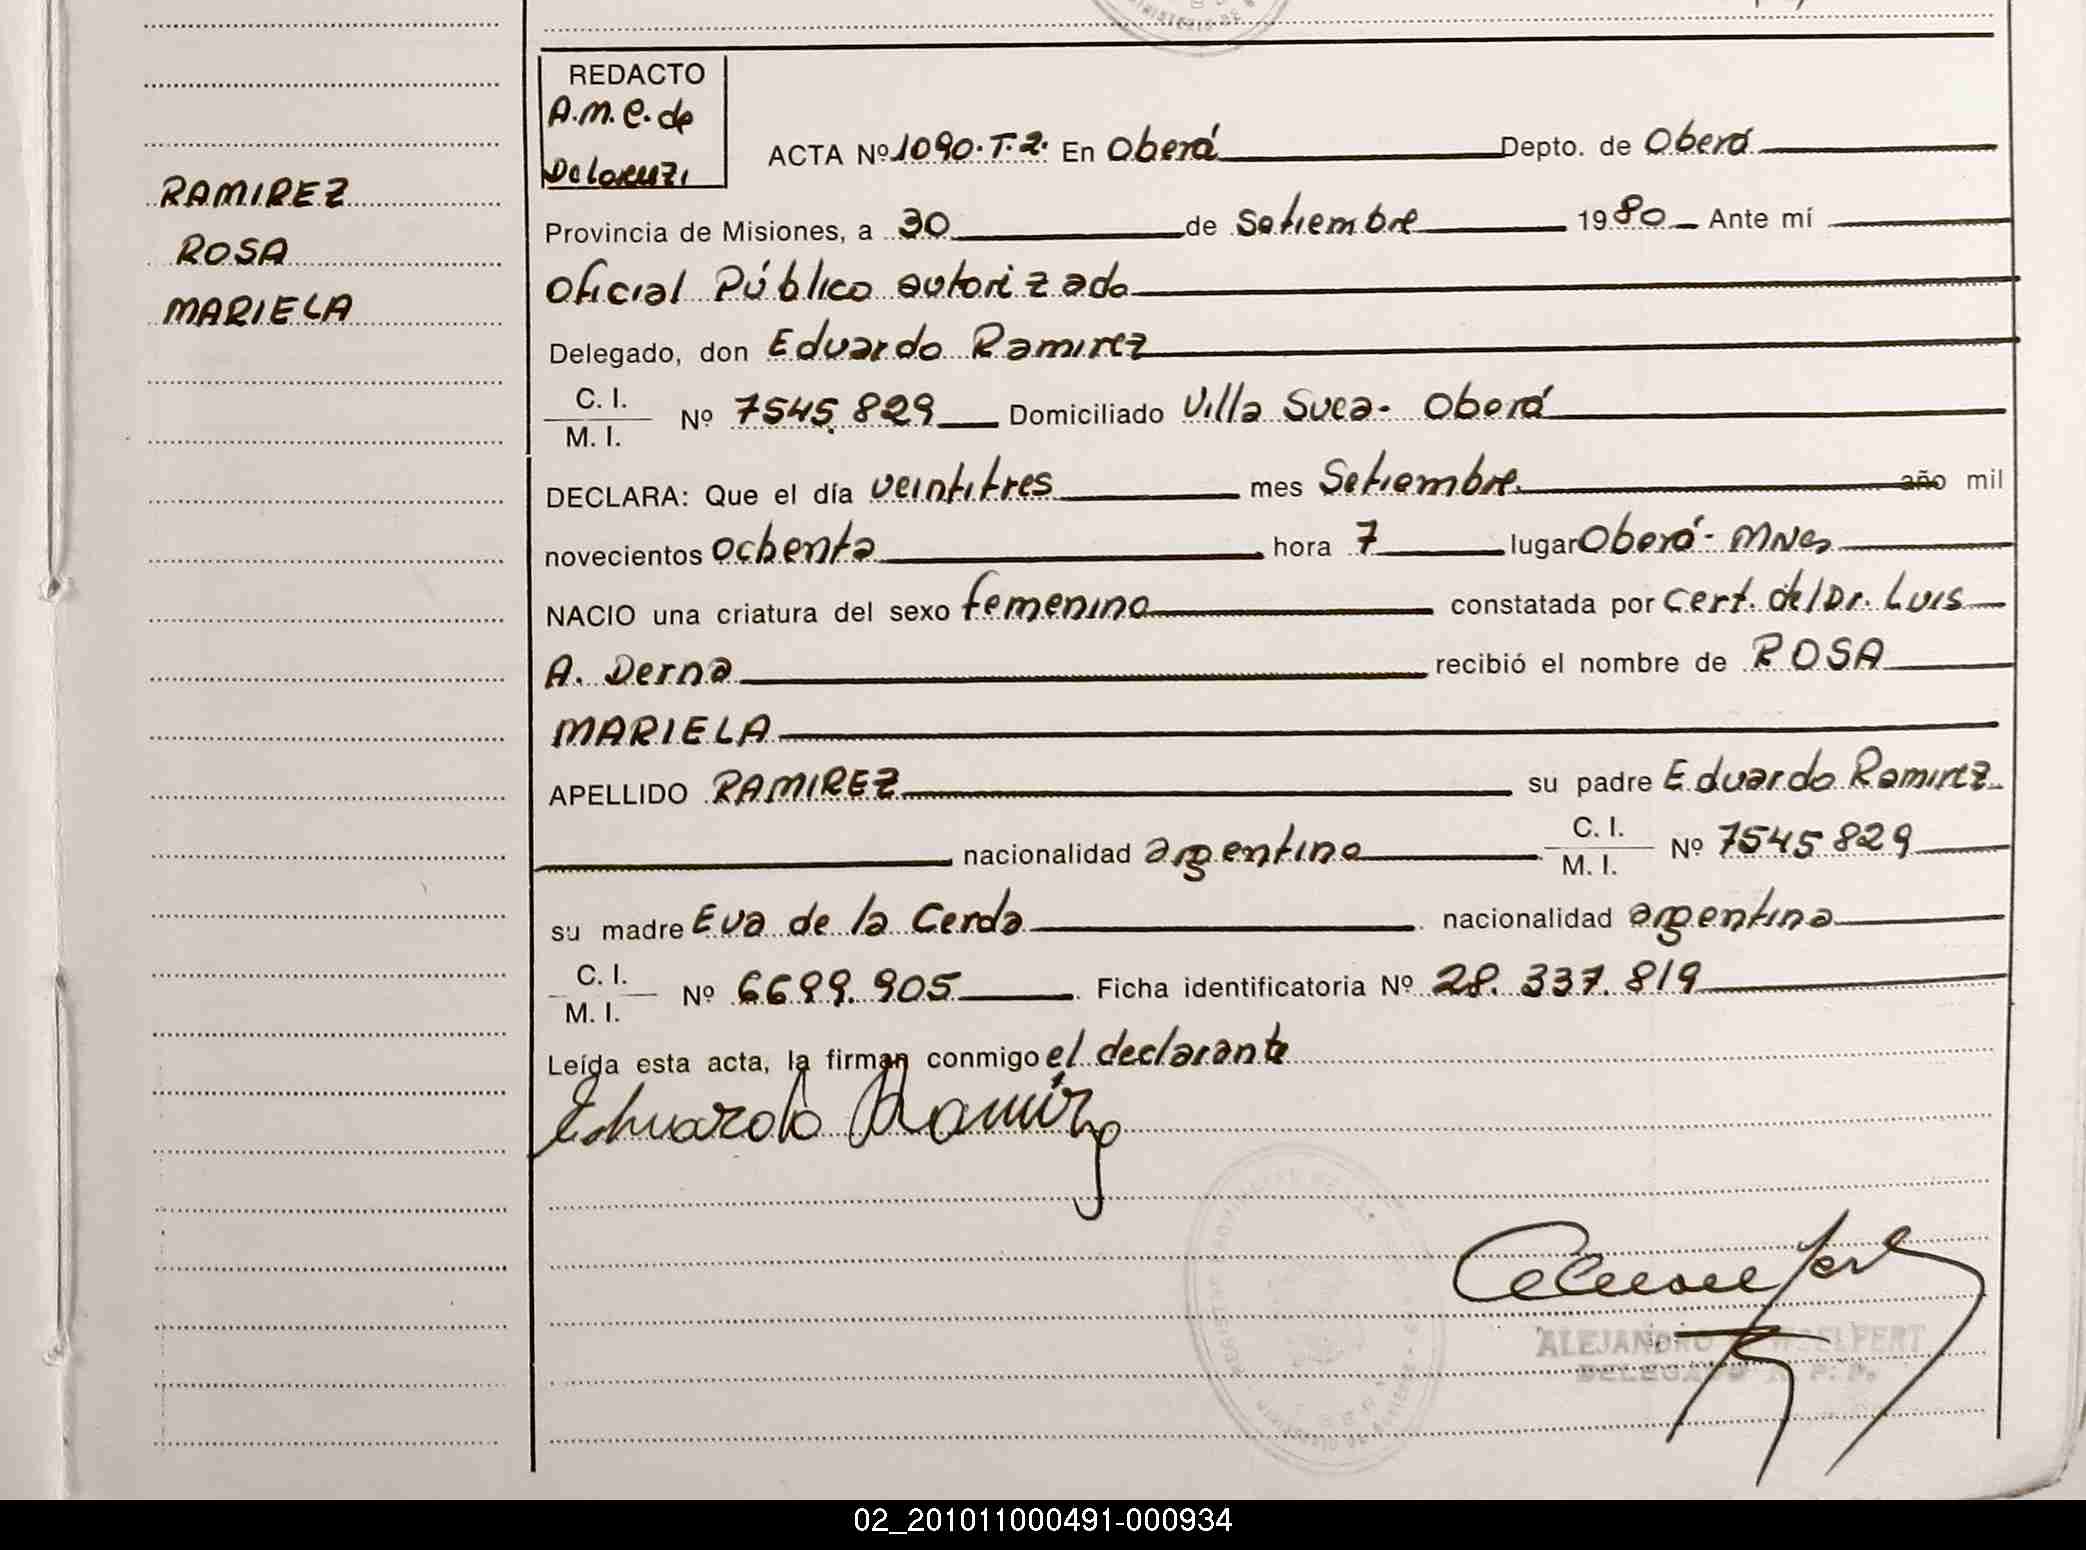 REDACTO
A.M.C. de
Delorenzi
RAMIREZ
ROSA
MARIELA
ACTA Nº 1090.T.2. En Oberá Depto. de Oberá
Provincia de Misiones, a 30 de Setiembre 1980 Ante mí
Oficial Público autorizado
Delegado, don Eduardo Ramirez
C. I.
M. I. Nº 7545.829 Domiciliado Villa Svea - Oberá
DECLARA: Que el día veintitres mes Setiembre año mil
novecientos ochenta hora 7 lugar Oberá - Mnes
NACIO una criatura del sexo femenino constatada por Cert. del Dr. Luis
A. Derna recibió el nombre de ROSA
MARIELA
APELLIDO RAMIREZ su padre Eduardo Ramirez
nacionalidad argentina C. I.
M. I. Nº 7545829
su madre Eva de la Cerda nacionalidad argentina
C. I.
M. I. Nº 6699.905 Ficha identificatoria Nº 28.337.819
Leída esta acta, la firman conmigo el declarante
Eduardo Ramirez
ALEJANDRO
DELEGADO R. P. P.
02_201011000491-000934